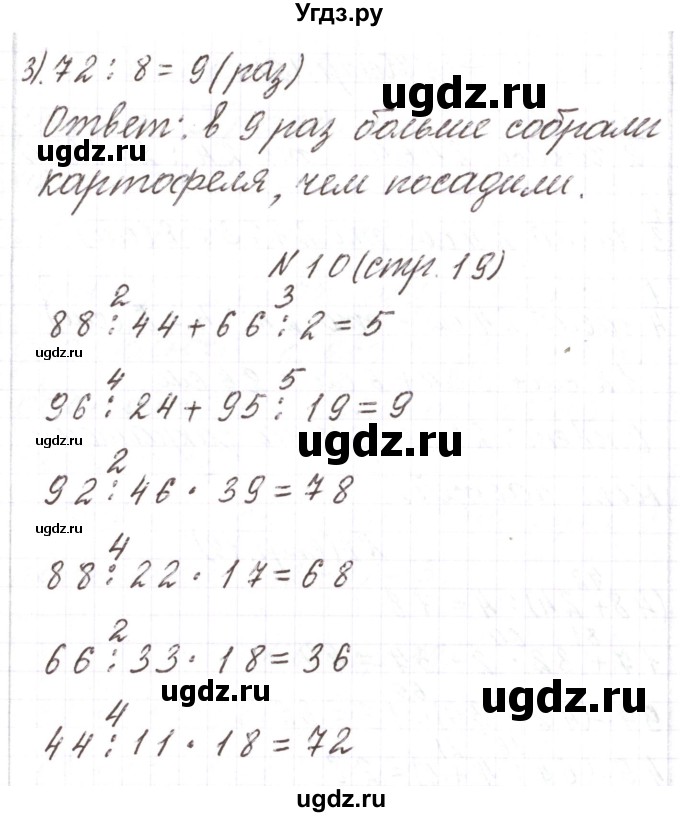 Угдз.ру
3). 72 : 8 = 9 (раз)
ugdz.ru
Ответ: в 9 раз больше собрали
ugdz.ru
картофеля, чем посадили.
N 10 (стр. 19)
2 3
88 : 44 + 66 : 2 = 5
ugdz.ru
4 5
96 : 24 + 95 : 19 = 9
ugdz.ru
ugdz.ru
2
92 : 46 · 39 = 78
ugdz.ru
4
88 : 22 · 17 = 68
2
66 : 33 · 18 = 36
ugdz.ru
ugdz.ru
4
44 : 11 · 18 = 72
ugdz.ru